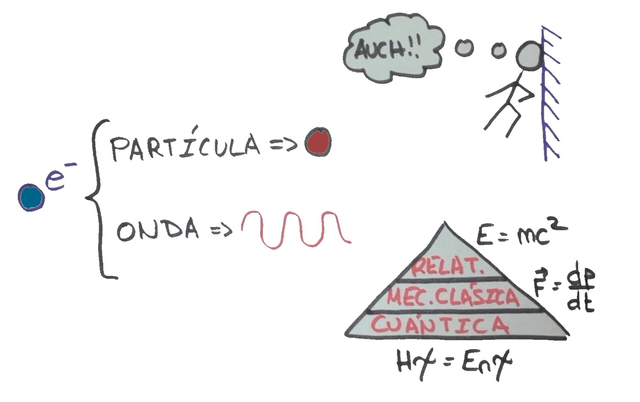 AUCH!!
e⁻
PARTÍCULA =>
ONDA =>
E = mc²
RELAT.
F⃗ = dp/dt
MEC. CLÁSICA
CUÁNTICA
Hψ = Enψ